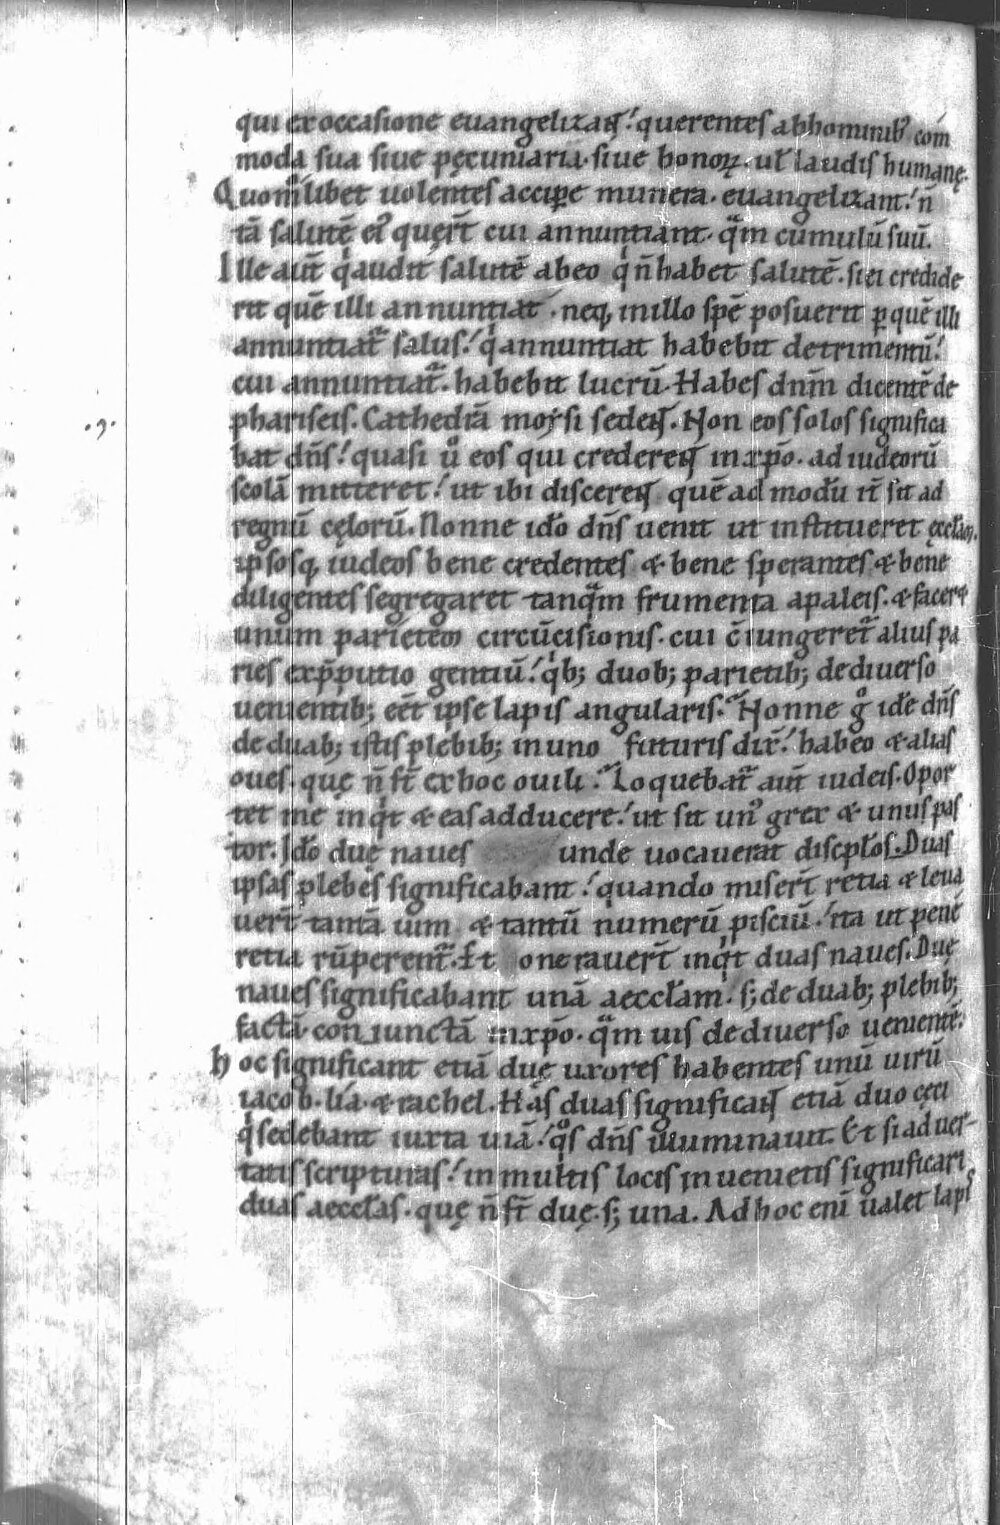 qui ex occasione euangelizant! querentes ab hominib᾽ com
moda sua siue pęcuniaria· siue honoꝝ· ul̄ laudis humanę·
Quom̊libet uolentes accipe munera· euangelizant! n̄
tā salutē ei᾽ quęrt̄ cui annuntiant· qᵃm cumulū suū·
Ille aut̄ qⁱ audit salutē ab eo qⁱ n̄ habet salutē· si ei credide
rit quē illi annuntiat· neq; in illo spē posuerit p quē illi
annuntiatᵃ salus! qⁱ annuntiat habebit detrimentū!
cui annuntiatᵃ· habebit lucrū· Habes dnm̄ dicentē de
phariseis· Cathedrā moysi sedent· Non eos solos significa
·9·
bat dn̄s! quasi ů eos qui crederent in xp̄o· ad iudeorū
scolā mitteret! ut ibi discerent quē ad modū it̄ sit ad
regnū cęlorū· Nonne idō dn̄s uenit ut institueret ęccl̄am·
ipsosq; iudeos bene credentes & bene sperantes & bene
diligentes segregaret tanqᵃm frumenta a paleis· & facere
unum parietem circūcisionis· cui c̄iungeretᵃ alius pa
ries ex p̄putio gentiū! qⁱb; duob; parietib; de diuerso
uenientib; eēt ipse lapis angularis· Nonne g̊ ide dn̄s
de duab; istis plebib; in uno futuris dix̄! habeo & alias
oues· quę n̄ st̄ ex hoc ouili· Loquebatᵃ aut̄ iudeis· Opor
tet me inqⁱt & eas adducere! ut sit un᾽ grex & unus pas
tor· Idō duę naues unde uocauerat discpl̄os· Duas
ipsas plebes significabant! quando misert̄ retia & leua
uert̄ tantā uim & tantū numerū pisciū! ita ut pene
retia rūperentᵃ· Et onerauert̄ inqⁱt duas naues· Duę
naues significabant unā aeccl̄am· s; de duab; plebib;
factā· coniunctā in xp̄o· qᵃm uis de diuerso uenientē·
hoc significant etiā duę uxores habentes unū uirū
iacob· lia· & rachel· Has duas significant etiā duo cęci
qⁱ sedebant iuxta uiā! qºs dn̄s illuminauit· Et si aduer-
tatis scripturas! in multis locis inuenietis significari
duas aeccl̄as· quę n̄ st̄ duę· s; una· Ad hoc enī ualet lapi